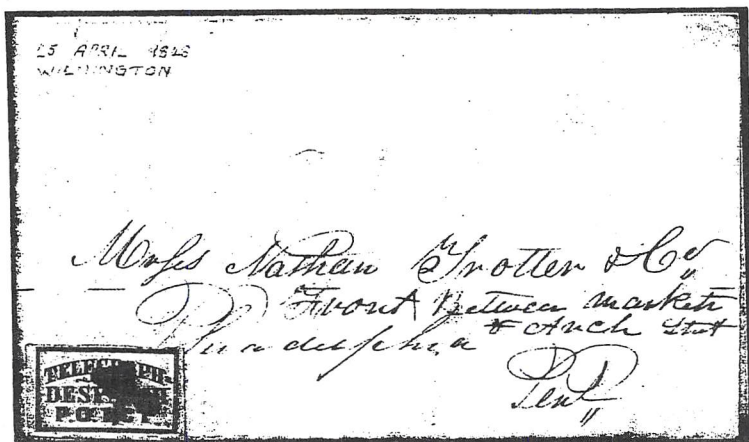 25 APRIL 1848
WILMINGTON
Messs Nathan Trotter & Co
Front Between Market
& Arch Stret
Philadelphia
Pena
TELEGRAPH-
DESPATCH
P.O.